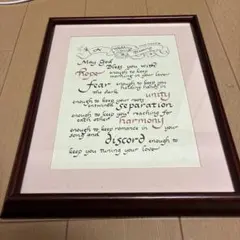 May God
Bless you with
hope enough to keep
working in your love
fear enough to keep you
holding hands in
the dark
unity
enough to keep your roots
entwined separation
enough to keep you reaching for
each other harmony
enough to keep romance in your
song and discord enough to
keep you tuning your love